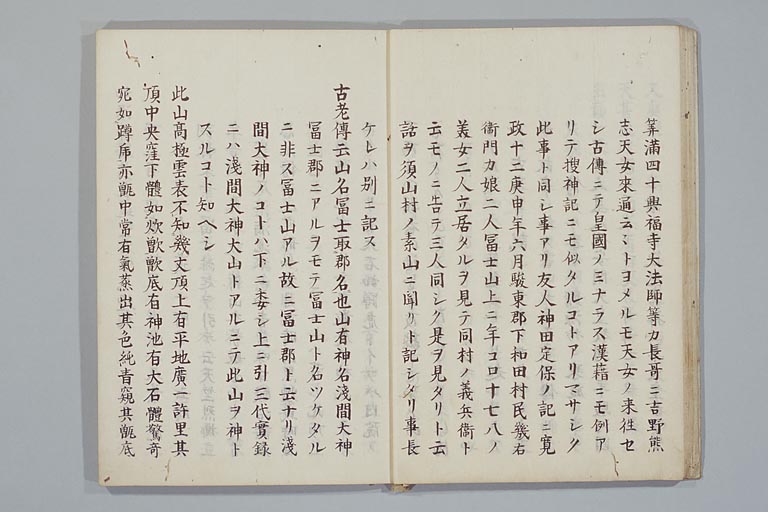 筭滿四十興福寺大法師等カ長哥ニ吉野熊
志天女來通云〻トヨメルモ天女ノ来往セ
シ古傳ニテ皇國ノミナラス漢藉ニモ例ア
リテ搜神記ニモ似タルコトアリマサシク
此事ト同シ事アリ友人神田定保ノ記ニ寛
政十三庚申年六月駿東郡下和田村民幾右
衞門カ娘二人冨士山上ニ年コロ十七八ノ
美女二人立居タルヲ見テ同村ノ義兵衞ト
云モノニ告テ三人同シク是ヲ見タリト云
話ヲ須山村ノ素山ニ聞リト記シタリ事長
ケレハ別ニ記ス
古老傳云山名冨士取郡名也山有神名淺間大神
冨士郡ニアルヲモテ冨士山ト名ツケタル
ニ非ス冨士山アル故ニ冨士郡ト云ナリ淺
間大神ノコトハ下ニ委シ上ニ引三代實録
ニハ淺間大神大山トアルニテ此山ヲ神ト
スルコト知ヘシ
此山髙極雲表不知幾丈頂上有平地廣一許里其
頂中央窪下體如炊甑甑底有神池有大石體驚奇
宛如蹲乕亦甑中常有氣蒸出其色純青窺其甑底